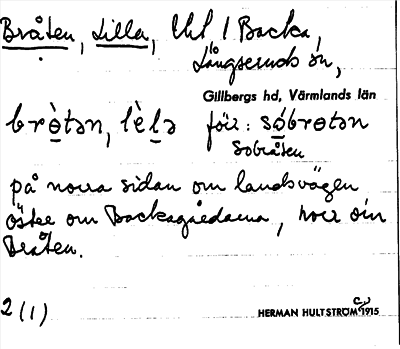 Bråten, Lilla, Uh 1 Backa,
Långseruds sn,
Gillbergs hd, Värmlands län
brò̠tən, lèl̠ə förr: só̠brotən
Sobråten
på norra sidan om landsvägen
öster om Backagårdarna, norr om
Bråten.
2 (1)
HERMAN HULTSTRÖM 1915